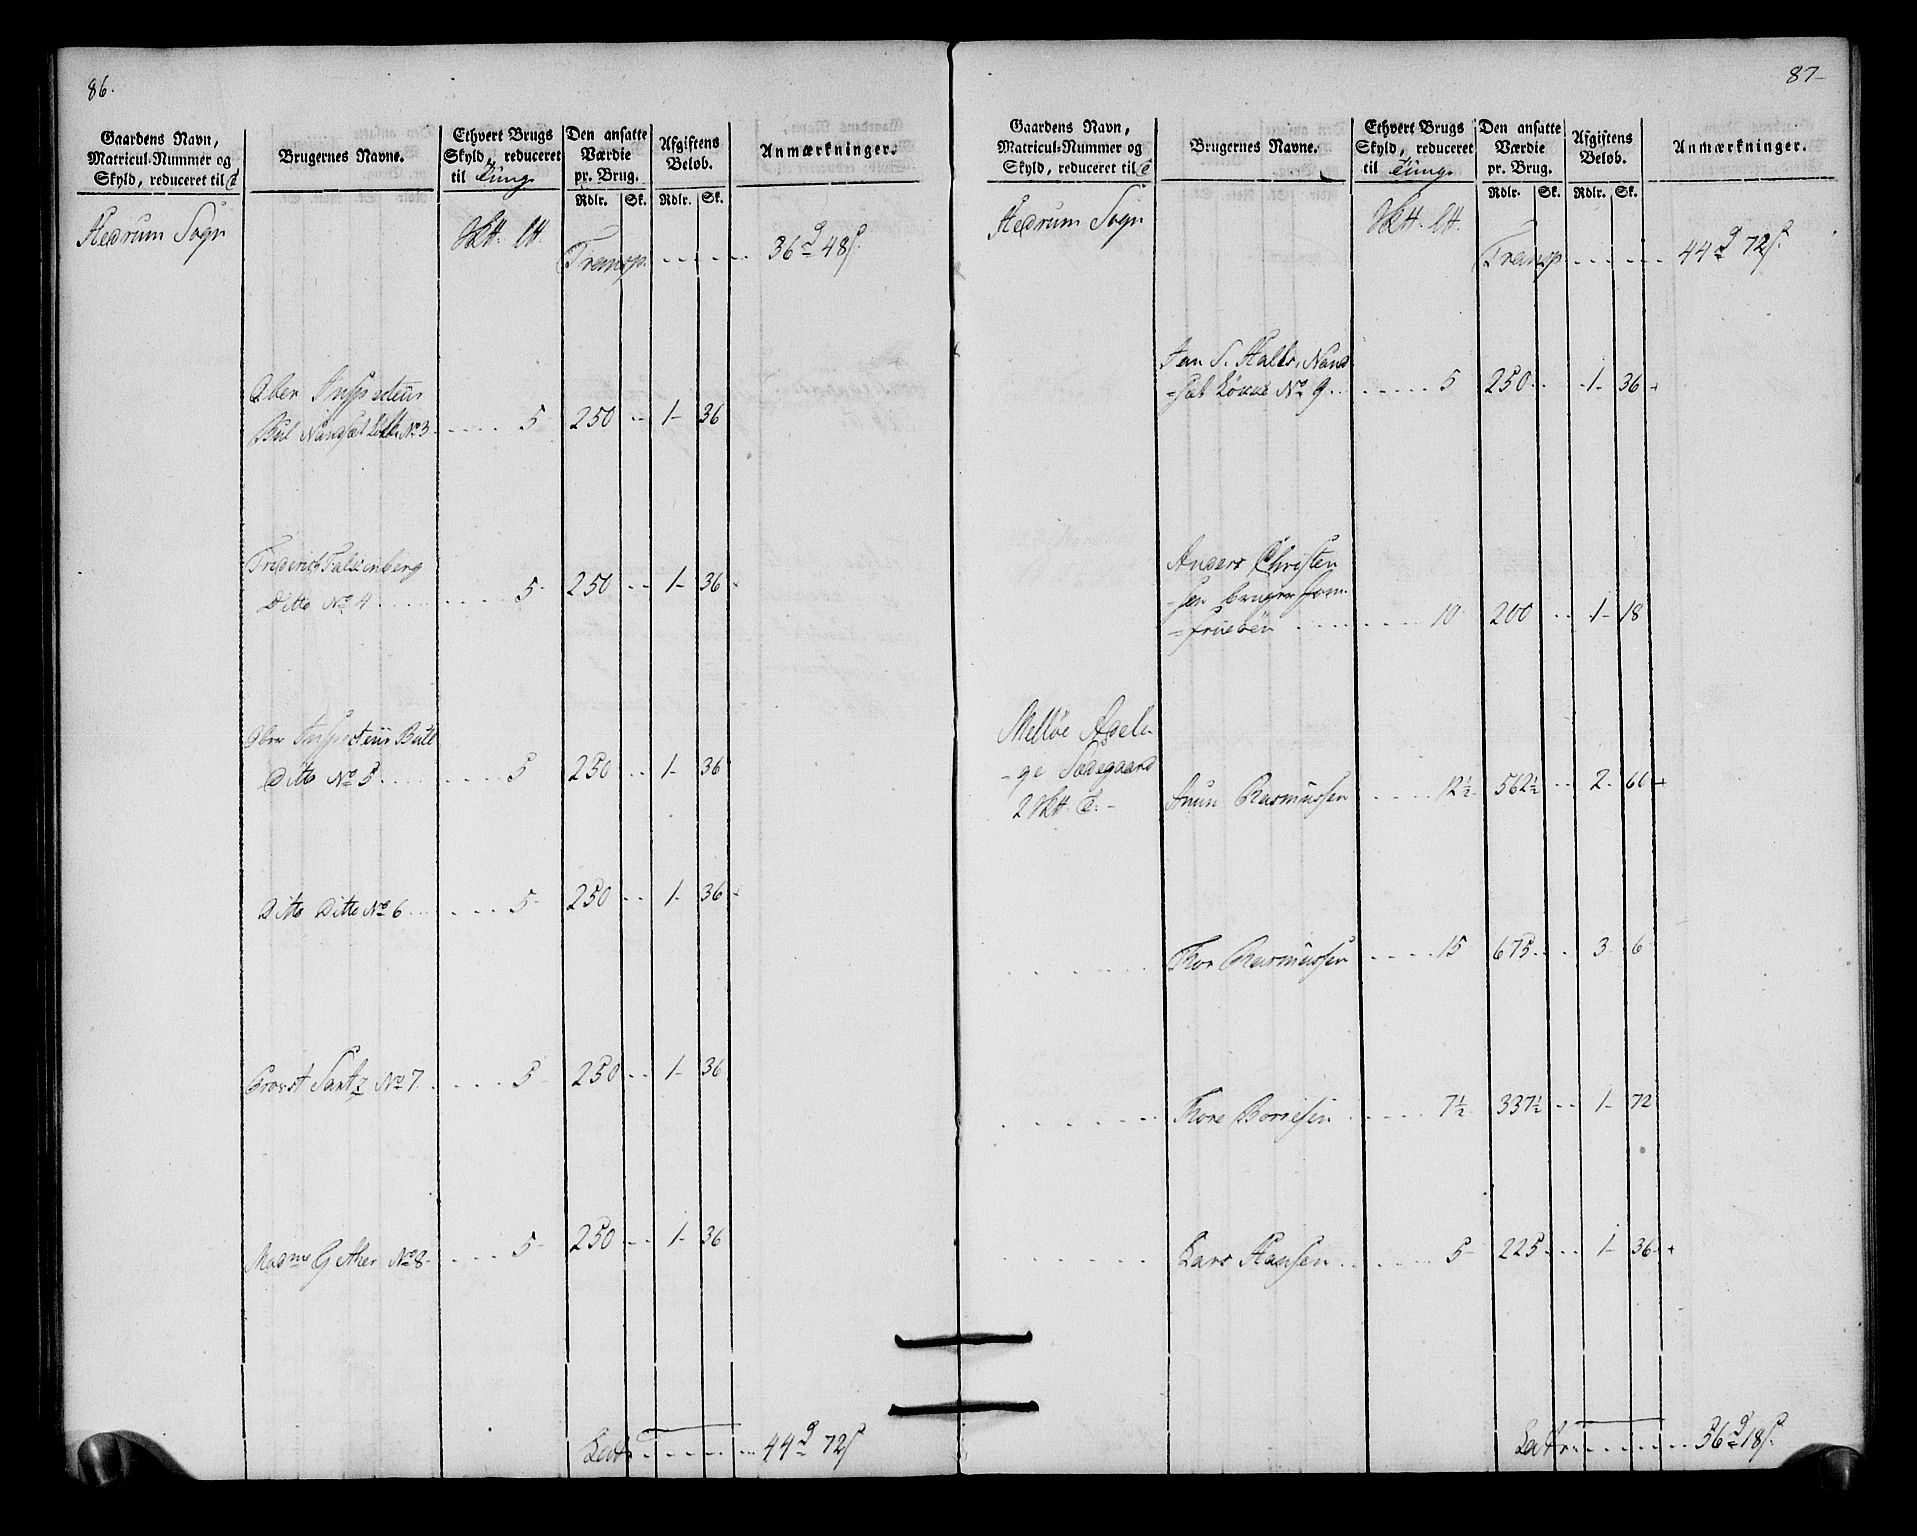 86.
Gaardens Navn,
Matricul-Nummer og
Skyld, reduceret til
Brugernes Navne.
Ethvert Brugs
Skyld, reduceret
til Tung.
Den ansatte
Værdie
pr. Brug.
Rdlr. Sk.
Afgiftens
Beløb.
Rdlr. Sk.
Anmærkninger.
Hedrum Sogn
Transp. 36 48
Ober Inspecteur
No 3 5 250 1 36
Friderich Falkenberg
Ditto No 4 5 250 1 36
Ober Inspecteur Bull
Ditto No 5 5 250 1 36
Ditto Ditto No 6 5 250 1 36
Provst No 7 5 250 1 36
Madme Gether No 8 5 250 1 36
Latr. 44 72
87
Gaardens Navn,
Matricul-Nummer og
Skyld, reduceret til
Brugernes Navne.
Ethvert Brugs
Skyld, reduceret
til Tung.
Den ansatte
Værdie
pr. Brug.
Rdlr. Sk.
Afgiftens
Beløb.
Rdlr. Sk.
Anmærkninger.
Hedrum Sogn
Transp. 44 72
No 9 5 250 1 36
Anders Christen
=sen bruger Jom
=fruebøn 10 200 1 18
Melløe Adeli
=ge Sædegaard
2
Rasmussen 12½ 562½ 2 60
Thor Rasmussen 15 675 3 6
Thore 7½ 337½ 1 72
Lars Hansen 5 225 1 36
Latr. 56 18